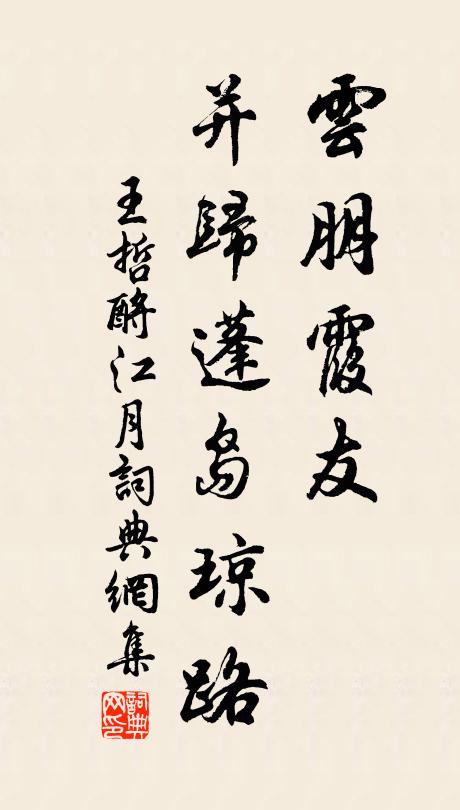 雲朋霞友
并歸蓬島琼路
王哲酹江月詞典網集
詞典網印